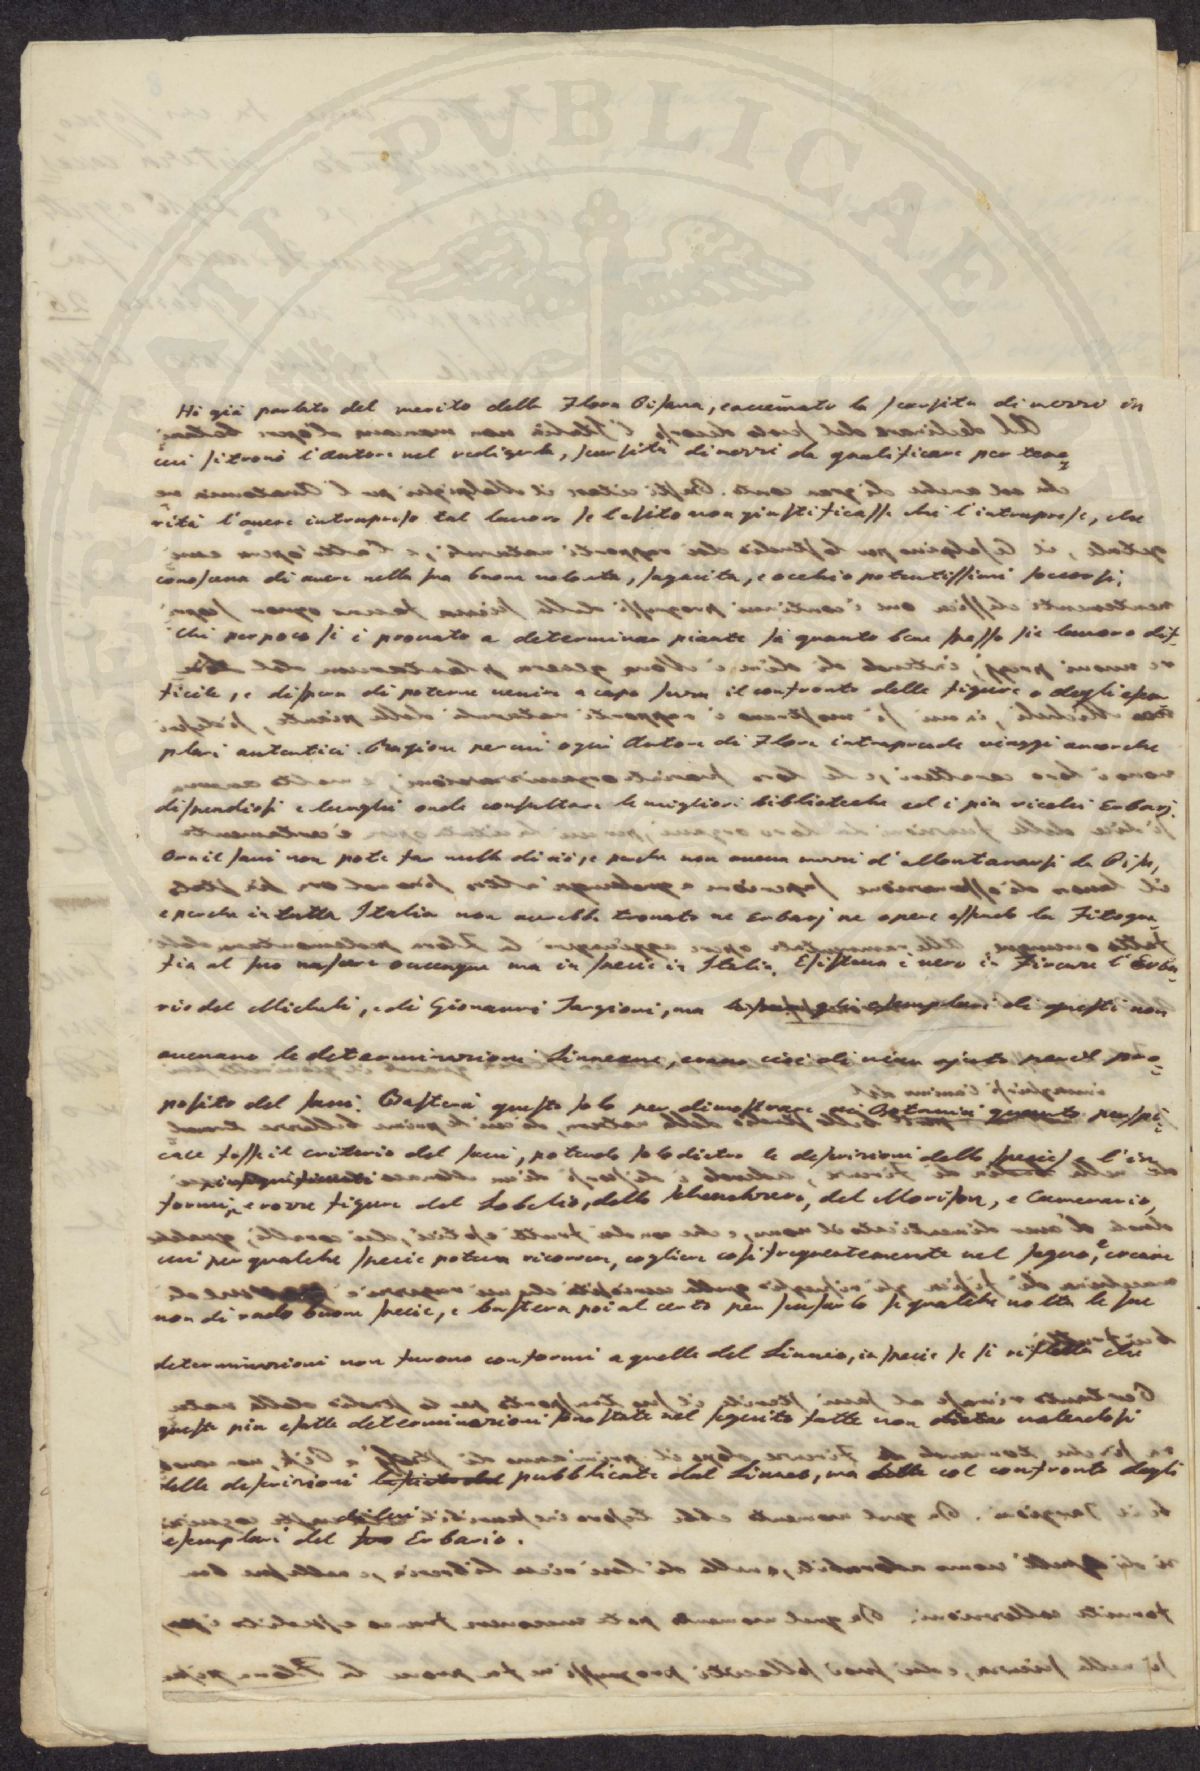 PUBLICAE
Ho già parlato del merito della Flora Pisana, e accennato la scarsità di mezzi in
cui si trovò l'autore nel redigerla, scarsità di mezzi da qualificare per teme=
rità l'avere intrapreso tal lavoro se l'esito non giustificasse chi l'intraprese, che
conosceva di avere nella sua buona volontà, sagacità, e occhio potentissimi soccorsi.
Chi per poco si è provato a determinar piante sà quanto bene spesso sia lavoro dif=
ficile, e dispera di poterne venire a capo senza il confronto delle figure o degli esem=
plari autentici. Ragione per cui ogni Autore di Flore intraprende viaggi ancorchè
dispendiosi e lunghi onde consultare le migliori biblioteche ed i più ricchi Erbarj.
Ora il Savi non potè far nulla di ciò, e perchè non aveva mezzi d'allontanarsi da Pisa,
e perchè in tutta Italia non avrebbe trovato nè Erbarj nè opere essendo la Fitogra=
fia al suo nascere ovunque ma in specie in Italia. Esisteva è vero in Firenze l'Erba=
rio del Micheli, e di Giovanni Targioni, ma gli esemplari di questi non
avevano le determinazioni Linneane, erano cioè di niun ajuto per il pro=
posito del Savi. Basterà questo solo per dimostrare quanto perspi=
cace fosse il criterio del Savi, potendo solo dietro le descrizioni delle specie e l'in
formi, e rozze figure del Lobelio, dello Scheuchzero, del Morison, e Camerario,
cui per qualche specie poteva ricorrere, cogliere così frequentemente nel segno, e creare
non di rado buone specie, e basterà poi al certo per scusarlo se qualche volta le sue
determinazioni non furono conformi a quelle del Linneo, in specie se si rifletta che
queste più esatte determinazioni sono state nel seguito fatte non valendosi
delle descrizioni pubblicate dal Linneo, ma col confronto degli
di lui
esemplari del suo Erbario.